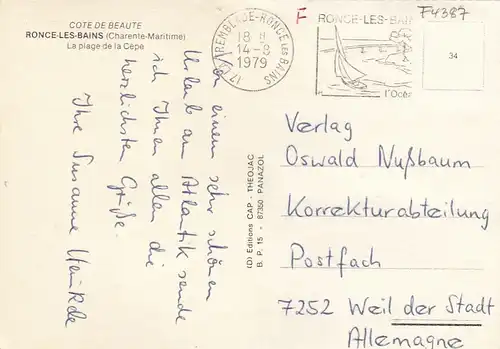 COTE DE BEAUTE
RONCE-LES-BAINS (Charente-Maritime)
La plage de la Cèpe
17 LA TREMBLADE-RONCE LES BAINS
18 H
14-8
1979
F
RONCE-LES-BAI
l'Océ
F4387
34
Von einem sehr schönen
Urlaub am Atlantik sende
ich Ihnen allen die
herzlichsten Grüße.
Ihre Susanne
(D) Editions CAP - THEOJAC
B. P. 15 - 87350 PANAZOL
Verlag
Oswald Nußbaum
Korrekturabteilung
Postfach
7252 Weil der Stadt
Allemagne